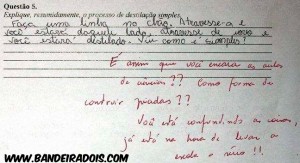 Questão 5.
Explique, resumidamente, o processo de destilação simples.
Faça uma linha no chão, atravesse-a e
você estará daquele lado, atravesse de novo e
você estará destilado. Viu como é simples!
É assim que você encara as aulas
de ciências?? Como forma de
construir piadas??
Você está confundindo as coisas,
já está na hora de levar a
escola a sério!!
WWW.BANDEIRADOIS.COM